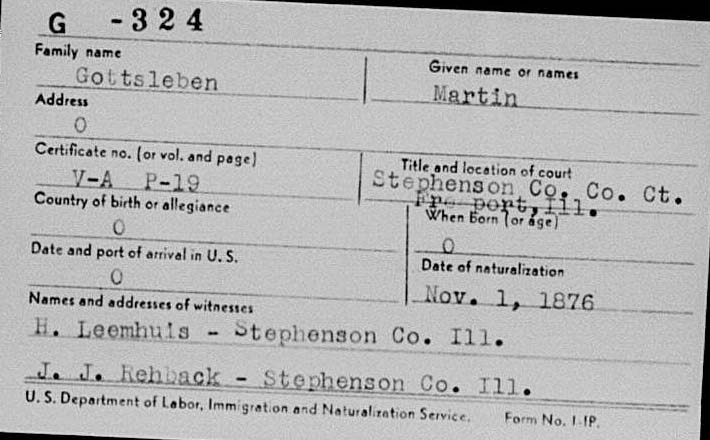 G -324
Family name
Given name or names
Gottsleben
Martin
Address
0
Certificate no. (or vol. and page)
Title and location of court
V-A P-19
Stephenson Co. Co. Ct.
Fre port, Ill.
Country of birth or allegiance
When born (or age)
0
0
Date and port of arrival in U. S.
Date of naturalization
0
Nov. 1, 1876
Names and addresses of witnesses
H. Leemhuis - Stephenson Co. Ill.
J. J. Rehback - Stephenson Co. Ill.
U. S. Department of Labor, Immigration and Naturalization Service. Form No. 1-IP.